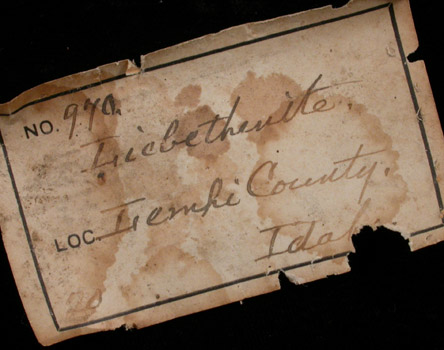 NO. 970.
Liebethenite.
LOC. Lemhi County.
Idah